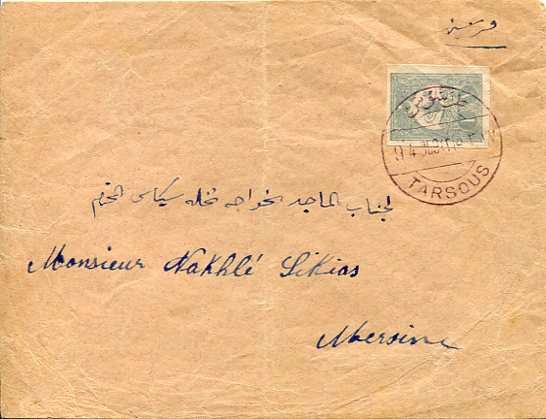 مرسين
طرسوس
TARSOUS
لجناب الماجد الخواجه نخله سيكاس المحترم
Monsieur Nakhlé Sikias
Mersine